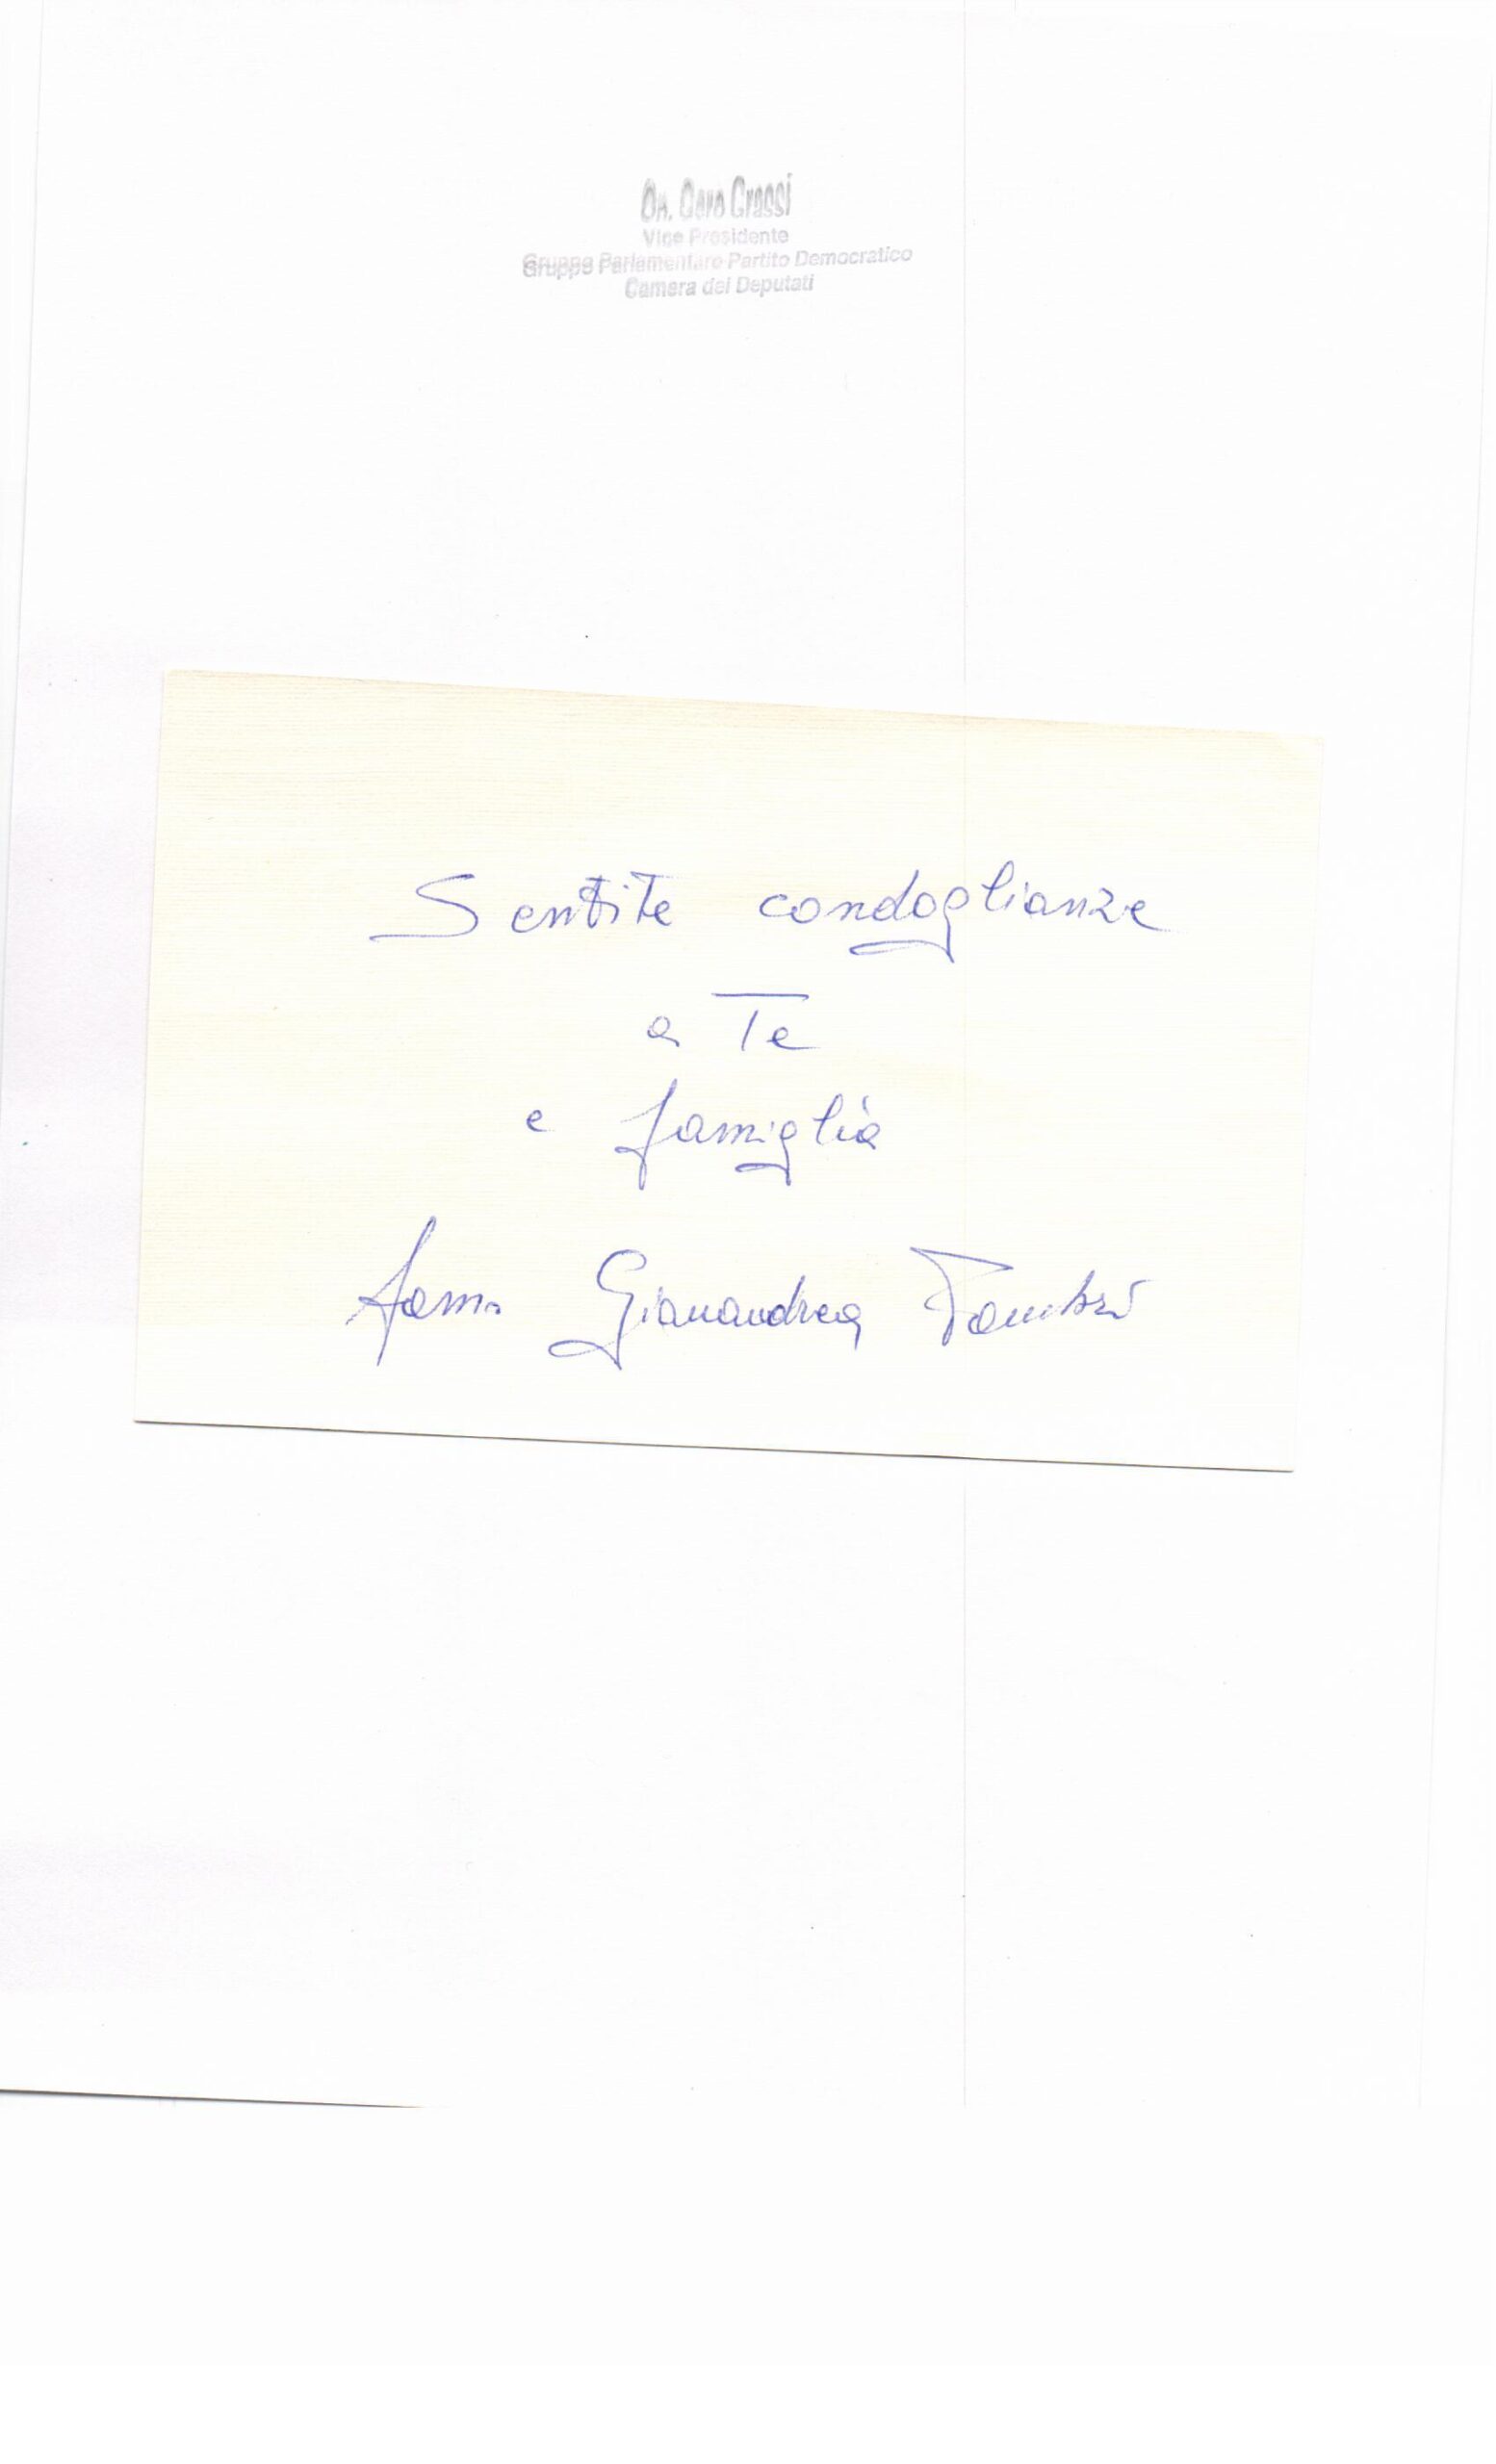 On. Gero Grassi
Vice Presidente
Gruppo Parlamentare Partito Democratico
Camera dei Deputati
Sentite condoglianze
a Te
e famiglia
fam. Gianandrea